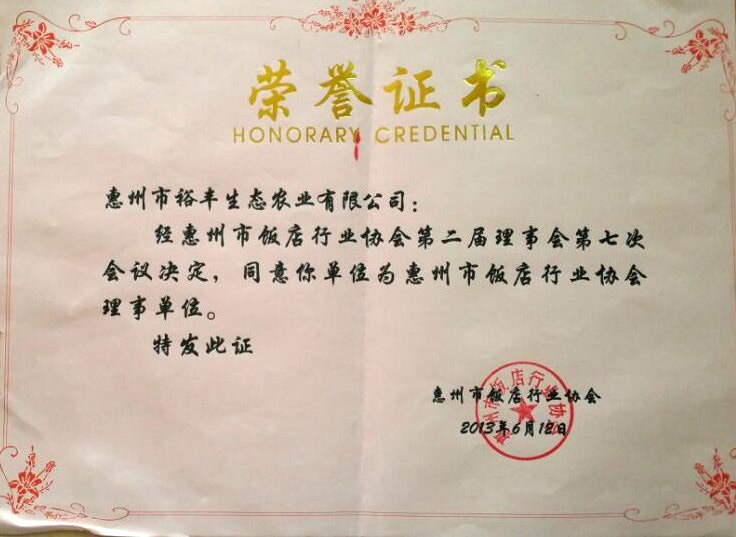 荣誉证书
HONORARY CREDENTIAL
惠州市裕丰生态农业有限公司：
经惠州市饭店行业协会第二届理事会第七次
会议决定，同意你单位为惠州市饭店行业协会
理事单位。
特发此证
惠州市饭店行业协会
2013年6月12日
惠州市饭店行业协会